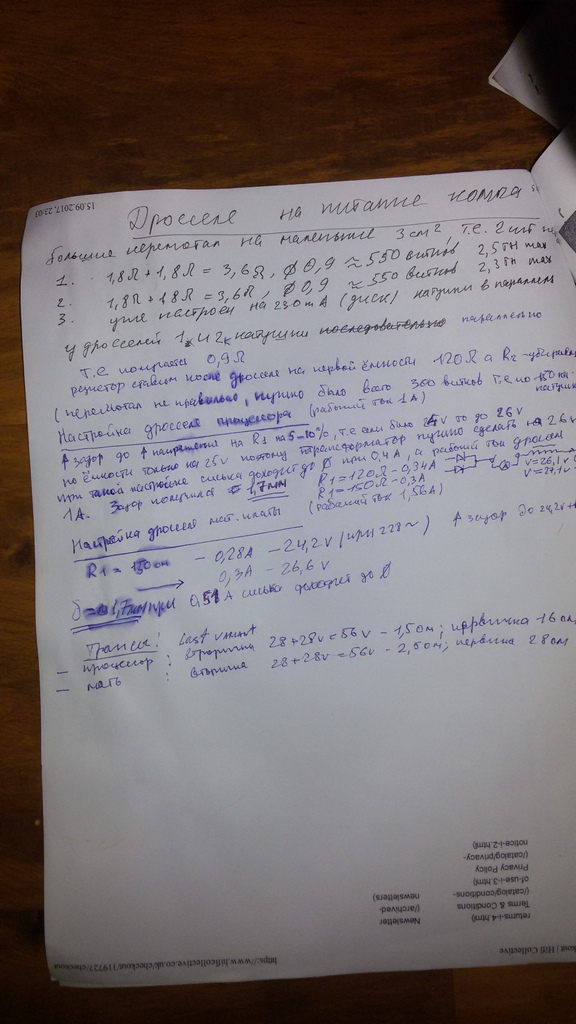 15.09.2017, 23:03
Дросселе на питание компа
большие перемотал на маленькие 3 см², т.е. 2 шт
1. 1,8Ω + 1,8Ω = 3,6Ω, ∅ 0,9 ≈ 550 витков 2,5 ГН max
2. 1,8Ω + 1,8Ω = 3,6Ω, ∅ 0,9 ≈ 550 витков 2,3 ГН max
3. уже настроен на 230 mA (диск) катушки в параллель
у дросселей 1 и 2 катушки последовательно параллельно
т.е. 0,9Ω
резистор ставим после дросселя на первой ёмкости 120Ω а R2 -
(перемотал не правильно, нужно было всего 300 витков т.е по 150 на
Настройка дросселя процессора (рабочий ток 1А)
↑ зазор до ↑ напряжения на R1 на 5-10%, т.е если было 25v то до 26v
но ёмкости только на 25v поэтому трансформатор нужно сделать на 26v
при такой настройке смело доходит до ∅ при 0,4А, а рабочий ток дросселя
1А. Зазор получился = 1,7мм R1 = 120Ω - 0,34А
R1 = 150Ω - 0,3А V=26,1v
V=27,1v
Настройка дросселя мат. платы (рабочий ток 1,56А)
R1 = 150 ом - 0,28А - 24,2v (при 228~) ↑ зазор до 24,2v
→ 0,3А - 26,6v
δ = 1,7мм при 0,51А смело доходит до ∅
Трансы! last variant
— процессор : вторичка 28+28v = 56v - 1,5ом; первичка 16 ом
— мать : вторичка 28+28v = 56v - 2,5ом; первичка 28 ом
https://www.hificollective.co.uk/checkout/119727/checkout
Hifi Collective
returns-i-4.html)
Terms & Conditions
(/catalog/conditions-
of-use-i-3.html)
Privacy Policy
(/catalog/privacy-
notice-i-2.html)
Newsletter
(/archived-
newsletters)